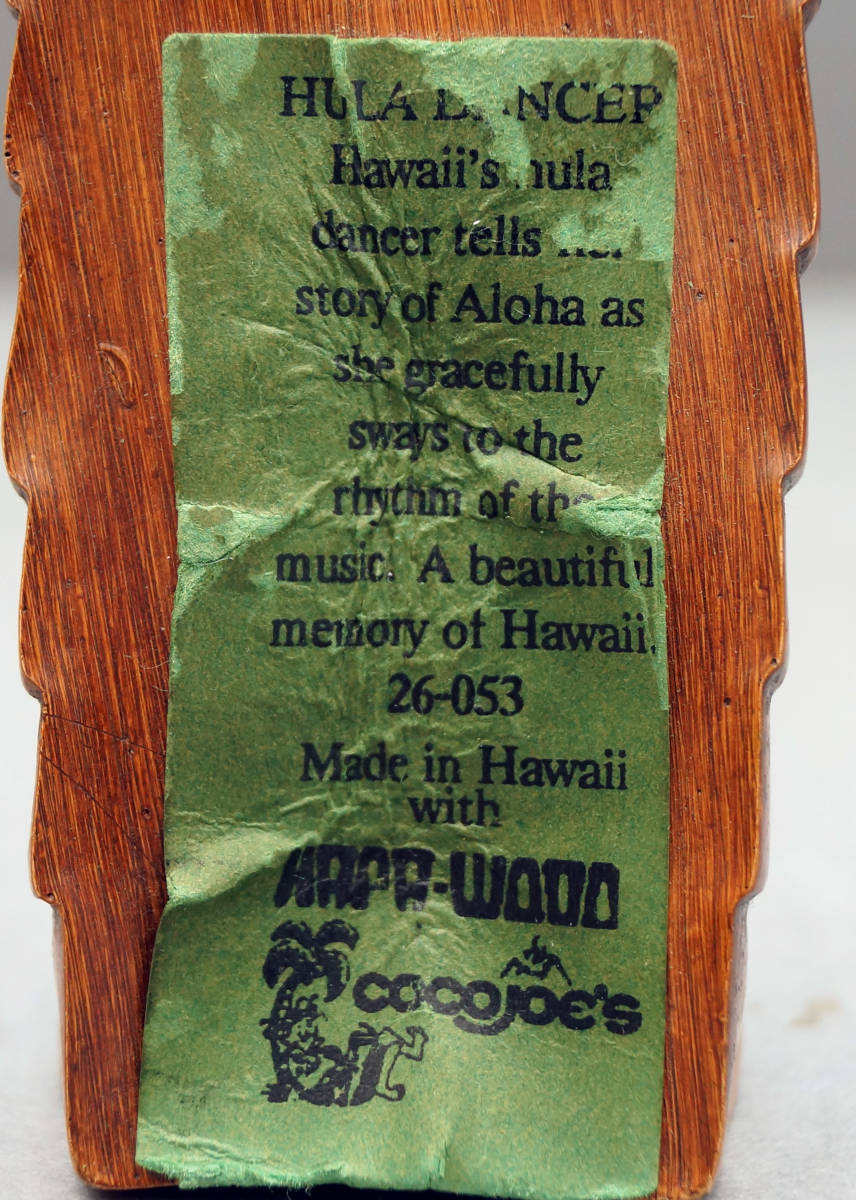 HULA DANCER
Hawaii's hula
dancer tells her
story of Aloha as
she gracefully
sways to the
rhythm of the
music. A beautiful
memory of Hawaii.
26-053
Made in Hawaii
with
HAPA-WOOD
COCO JOE'S